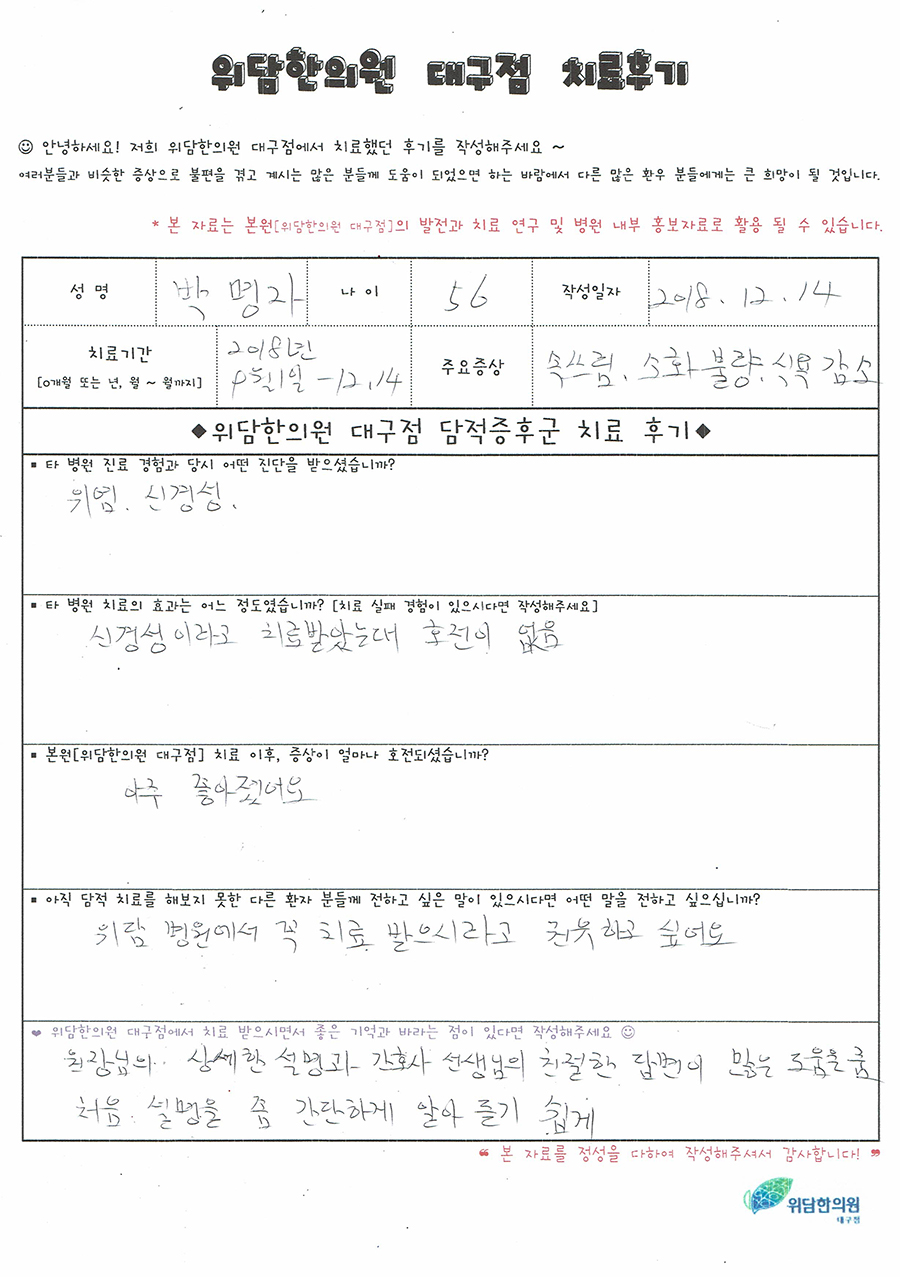 위담한의원 대구점 치료후기
☺ 안녕하세요! 저희 위담한의원 대구점에서 치료했던 후기를 작성해주세요 ~
여러분들과 비슷한 증상으로 불편을 겪고 계시는 많은 분들께 도움이 되었으면 하는 바람에서 다른 많은 환우 분들에게는 큰 희망이 될 것입니다.
* 본 자료는 본원[위담한의원 대구점]의 발전과 치료 연구 및 병원 내부 홍보자료로 활용 될 수 있습니다.
성 명 박 명자 나 이 56 작성일자 2018. 12. 14
치료기간 2018년 주요증상 속쓰림. 소화불량. 식욕감소
[0개월 또는 년, 월 ~ 월까지] 1일 - 12.14
◆위담한의원 대구점 담적증후군 치료 후기◆
▪ 타 병원 진료 경험과 당시 어떤 진단을 받으셨습니까?
위염. 신경성.
▪ 타 병원 치료의 효과는 어느 정도였습니까? [치료 실패 경험이 있으시다면 작성해주세요]
신경성이라고 치료받았는대 호전이 없음
▪ 본원[위담한의원 대구점] 치료 이후, 증상이 얼마나 호전되셨습니까?
아주 좋아졌어요
▪ 아직 담적 치료를 해보지 못한 다른 환자 분들께 전하고 싶은 말이 있으시다면 어떤 말을 전하고 싶으십니까?
위담 병원에서 꼭 치료 받으시라고 권유하고 싶어요
❤ 위담한의원 대구점에서 치료 받으시면서 좋은 기억과 바라는 점이 있다면 작성해주세요 ☺
원장님의 상세한 설명과 간호사 선생님의 친절한 답변이 많은 도움을 줌
처음 설명을 좀 간단하게 알아 듣기 쉽게
❝ 본 자료를 정성을 다하여 작성해주셔서 감사합니다! ❞
위담한의원
대구점